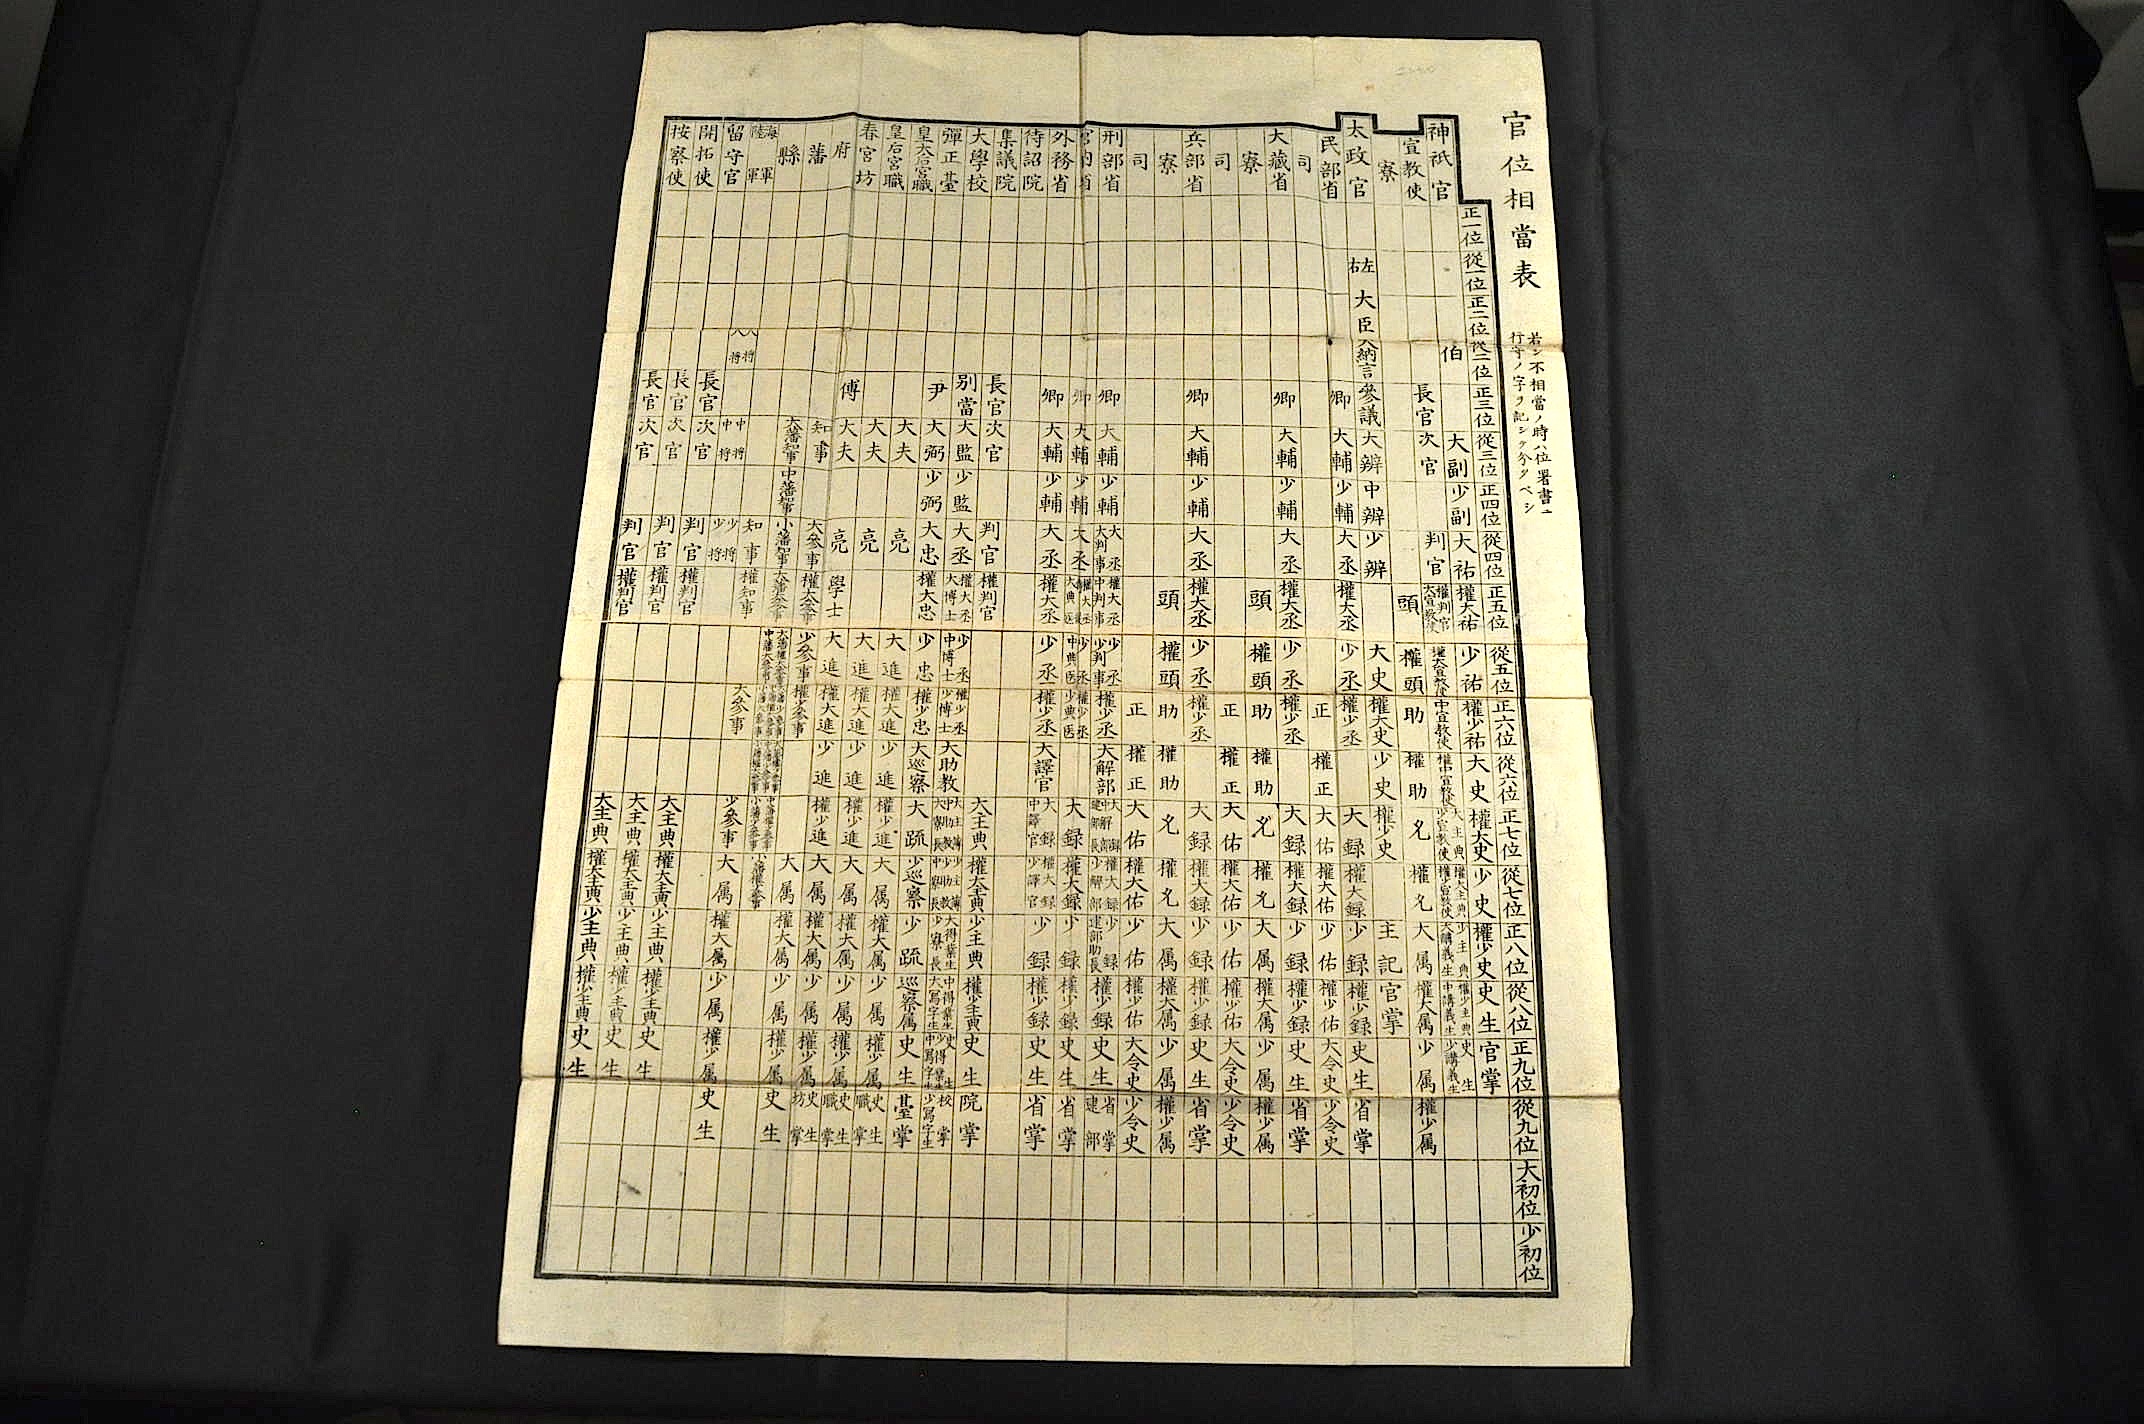 官位相當表
若シ不相當ノ時ハ位署書ニ
行守ノ字ヲ記シテ分ツベシ
正一位 從一位 正二位 從二位 正三位 從三位 正四位 從四位 正五位 從五位 正六位 從六位 正七位 從七位 正八位 從八位 正九位 從九位 大初位 少初位
神祇官 伯 大副 少副 大祐 權大祐 少祐 權少祐 大史 權大史 少史 權少史 史生 官掌
宣教使 長官 次官 判官 權判官 大宣教使 權大宣教使 中宣教使 權中宣教使 大主典 少宣教使 權大主典 權少宣教使 少主典 大講義生 權少主典 中講義生 史生 少講義生
寮 頭 權頭 助 權助 允 權允 大属 權大属 少属 權少属
太政官 左右大臣 大納言 參議 大辨 中辨 少辨 大史 權大史 少史 權少史 主記 官掌
民部省 卿 大輔 少輔 大丞 權大丞 少丞 權少丞 大録 權大録 少録 權少録 史生 省掌
司 正 權正 大佑 權大佑 少佑 權少佑 大令史 少令史
大藏省 卿 大輔 少輔 大丞 權大丞 少丞 權少丞 大録 權大録 少録 權少録 史生 省掌
寮 頭 權頭 助 權助 允 權允 大属 權大属 少属 權少属
司 正 權正 大佑 權大佑 少佑 權少佑 大令史 少令史
兵部省 卿 大輔 少輔 大丞 權大丞 少丞 權少丞 大録 權大録 少録 權少録 史生 省掌
寮 頭 權頭 助 權助 允 權允 大属 權大属 少属 權少属
司 正 權正 大佑 權大佑 少佑 權少佑 大令史 少令史
刑部省 卿 大輔 少輔 大丞 大判事 權大丞 中判事 少丞 少判事 權少丞 大解部 大録 中解部 權大録 少解部 少録 權少録 史生 省掌
宮内省 卿 大輔 少輔 大丞 權大丞 大典医 少丞 中典医 權少丞 少典医 大録 權大録 少録 權少録 史生 省掌
外務省 卿 大輔 少輔 大丞 權大丞 少丞 權少丞 大譯官 大録 中譯官 權大録 少譯官 少録 權少録 史生 省掌
待詔院
集議院 長官 次官 判官 權判官 大主典 權大主典 少主典 權少主典 史生 院掌
大學校 別當 大監 少監 大丞 權大丞 大博士 少丞 中博士 權少丞 少博士 大助教 大主簿 中助教 少主簿 少助教 大得業生 中得業生 大寫字生 史生 少得業生 中寫字生 校掌 少寫字生
彈正臺 尹 大弼 少弼 大忠 權大忠 少忠 權少忠 大巡察 大疏 少巡察 少疏 巡察属 史生 臺掌
皇太后宮職 大夫 亮 大進 權大進 少進 權少進 大属 權大属 少属 權少属 史生 職掌
皇后宮職 大夫 亮 大進 權大進 少進 權少進 大属 權大属 少属 權少属 史生 職掌
春宮坊 傅 大夫 亮 學士 大進 權大進 少進 權少進 大属 權大属 少属 權少属 史生 坊掌
府 知事 大參事 權大參事 少參事 權少參事 大属 權大属 少属 權少属 史生
藩 大藩知事 中藩知事 小藩知事 大藩大參事
縣 知事 權知事 大參事 少參事 大属 權大属 少属 權少属 史生
海軍 陸軍 大將 大將 中將 中將 少將 少將
留守官 長官 次官 判官 權判官 大主典 權大主典 少主典 權少主典 史生
開拓使 長官 次官 判官 權判官 大主典 權大主典 少主典 權少主典 史生
按察使 長官 次官 判官 權判官 大主典 權大主典 少主典 權少主典 史生